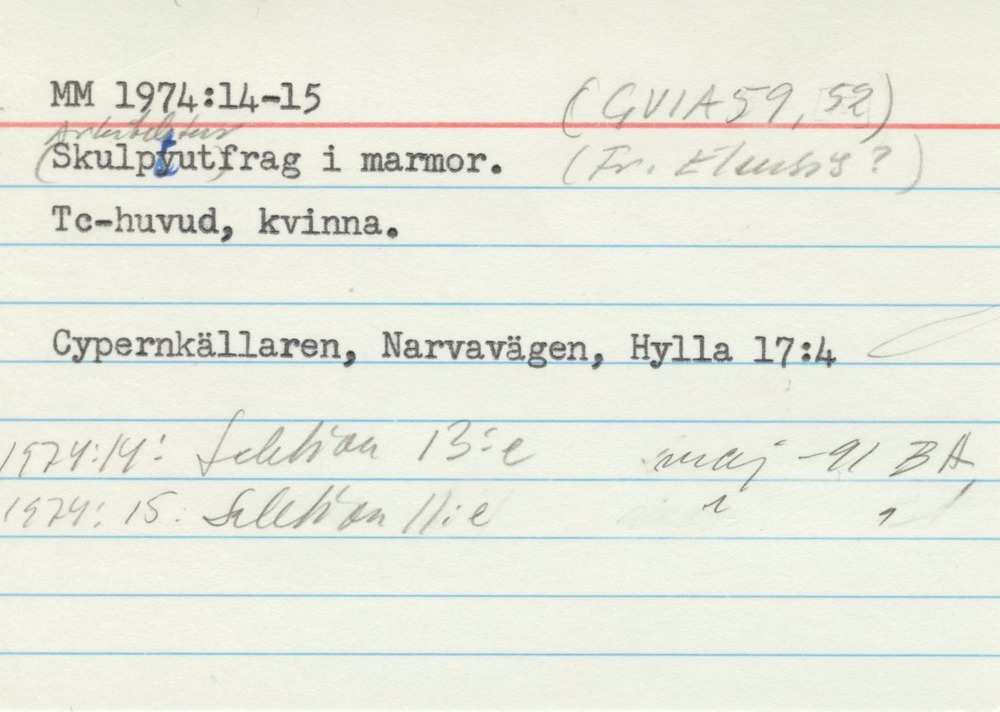 MM 1974:14-15 (GVIA59, 52)
Arkitektur
(Skulptutfrag) i marmor. (Fr. Eleusis?)
Tc-huvud, kvinna.
Cypernkällaren, Narvavägen, Hylla 17:4
1974:14: Sektion 13:e maj -91 BA
1974: 15: Sektion 11:e " "